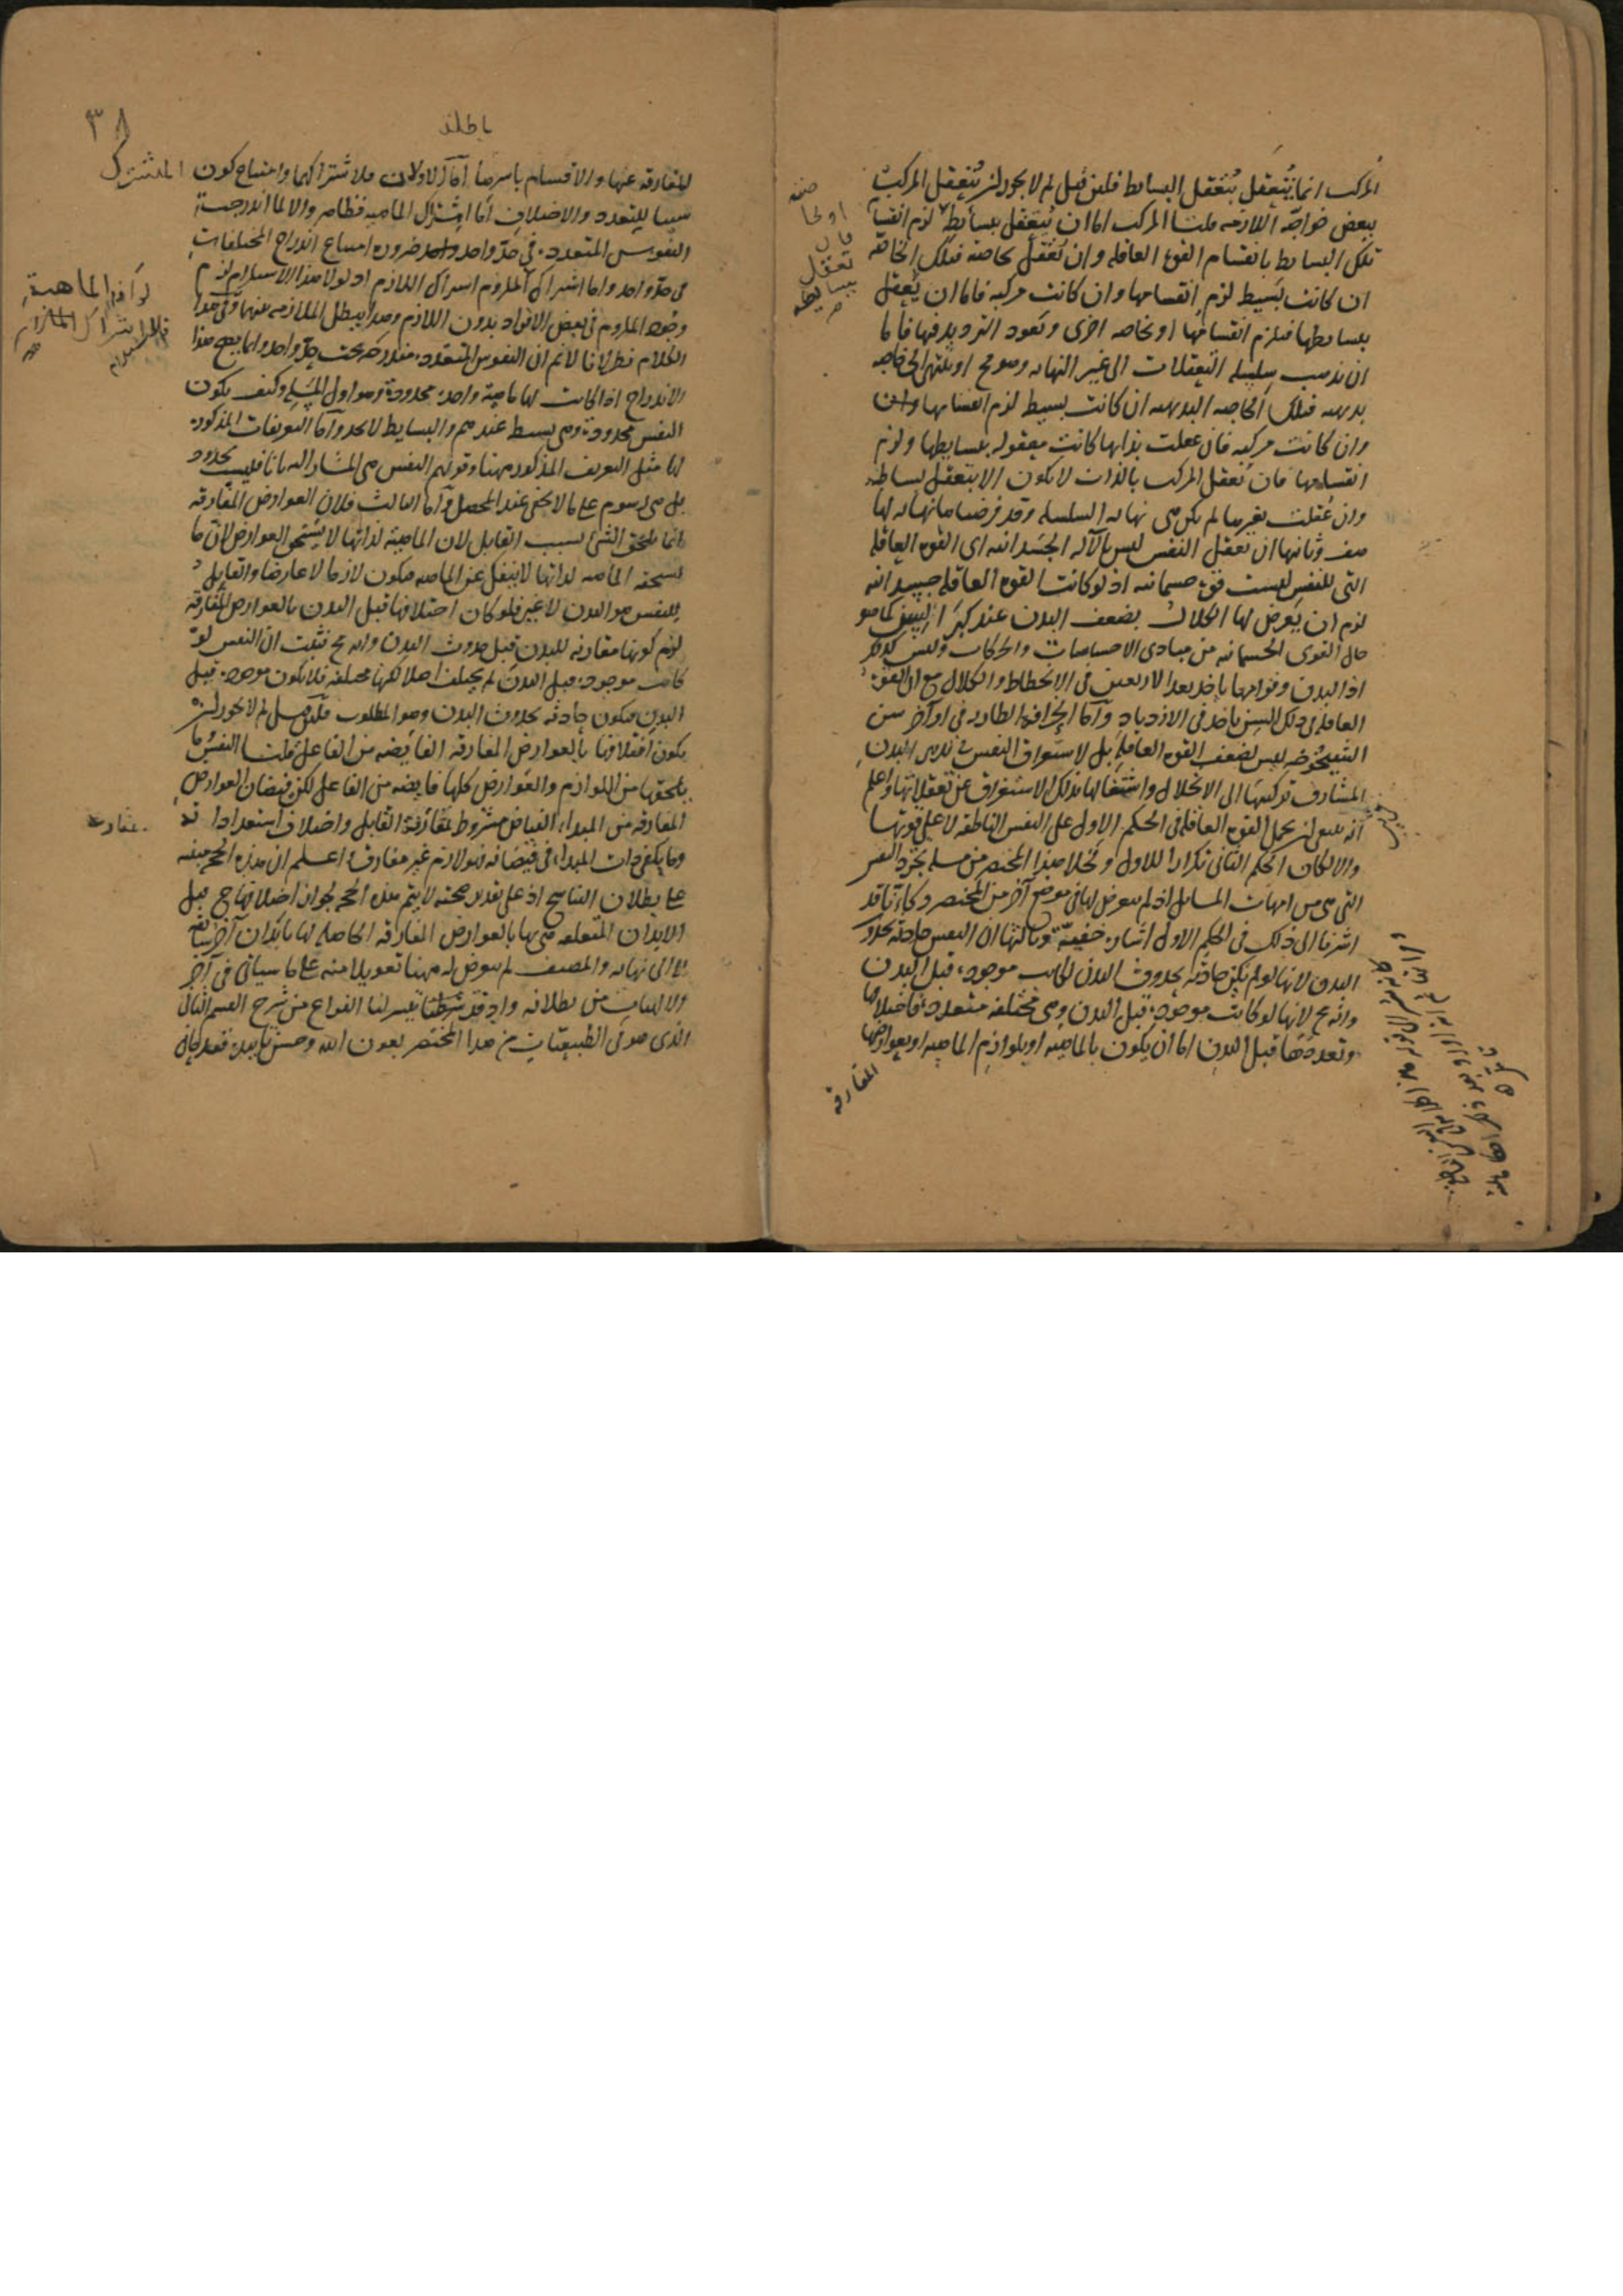 المركب انما يُتعقل بتعقل البسايط فلئن قيل لم لا يجوز ان يُتعقل المركب
ببعض خواصّه اللازمه قلت المركب اما ان يُتعقل ببسايطه لزم انقسام
تلك البسايط بانقسام القوة العاقله وان تُعقل بخاصه فتلك الخاصّه
ان كانت بسيط لزم انقسامها وان كانت مركبه فاما ان يُعقل
ببسايطها فيلزم انقسامها او بخاصه اخرى ويعود الترديد فيها فاما
ان تذهب سلسله التعقلات الى غير النهايه وهو مح او ينتهى الى خاصه
بديهيه فتلك الخاصه البديهيه ان كانت بسيط لزم انقسامها
وان كانت مركبه فان عقلت بذاتها كانت معقوله ببسايطها ولزم
انقسامها فان تعقل المركب بالذات لا يكون الا بتعقل بسايطه
وان عُقلت بغيرها لم يكن هى نهايه السلسله وقد فرضناها نهايه لها
هف وثانيها ان تعقل النفس ليس بالآله الجسدانيه اى القوه العاقله
التى للنفس ليست قوة جسمانيه اذ لو كانت القوه العاقله جسدانيه
لزم ان يعرض لها الكلال بضعف البدن عند كبر السن كما هو
حال القوى الجسمانيه من مبادى الاحساسات والحركات وليس كذلك
اذ البدن وقواها ياخذ بعد الاربعين فى الانحطاط والكلال مع ان القوة
العاقله فى ذلك السن ياخذ فى الازدياد وآما الخرافه الطاريه فى اواخر سن
الشيخوخه ليس لضعف القوه العاقله بل لاستغراق النفس فى تدبير البدن
المشارف تركيبها الى الانحلال واشتغالها بذلك الاستغراق عن تعقلاتها واعلم
انه ينبغى ان يحمل القوه العاقله فى الحكم الاول على النفس الناطقه لا على قوتها
والا لكان الحكم الثانى تكرارا للاول ولخلا هذا المختصر من مسله تجرد النفس
التى هى من امهات المسايل اذ لم يتعرض لها فى موضع آخر من المختصر وكاننا قد
اشرنا الى ذلك فى الحكم الاول اشارة خفيّة وثالثها ان النفس حادثه بحدوث
البدن لانها لو لم تكن حادثه بحدوث البدن لكانت موجودة قبل البدن
وانه مح لانها لو كانت موجودة قبل البدن وهى مختلفه متعدده فاختلافها
وتعددها قبل البدن اما ان يكون بالماهيه او بلوازم الماهيه او بعوارضها
المفارقه
٣٨
باطله
المفارقه عنها والاقسام باسرها آما الاولان فلاشتراكهما وامتناع كون المشترك
سببا للتعدد والاختلاف اما اشتراك الماهيه فظاهر والا لما اندرجت
النفوس المتعدده فى حدّ واحد ضروره امتناع اندراج المختلفات
فى حدّ واحد واما اشتراك الملزوم اشتراك اللازم اذ لولا هذا الاستلزام لزم
وجود الملزوم فى بعض الافراد بدون اللازم وهذا يبطل الملازمه بينهما وفى هذا
الكلام نظر لانا لا نم ان النفوس المتعدده مندرجه تحت حدّ واحد وانما يصح هذا
الاندراج اذا كانت لها ماهية واحده محدودة وهو اول المسله وكيف يكون
النفس محدودة وهى بسيط عندهم والبسايط لا تحد وآما التعريفات المذكوره
لها مثل التعريف المذكور ههنا وقولهم النفس هى المشار اليه بانا فليست بحدود
بل هى رسوم على ما لا يخفى عند المحصل وآما الثالث فلان العوارض المفارقه
انما يلحق الشئ بسبب القابل لان الماهية لذاتها لا يستحق العوارض لان ما
يستحقه الماهيه لذاتها لا ينفك عن الماهيه فيكون لازما لا عارضا والقابل
للنفس هو البدن لا غير فلو كان اختلافها قبل البدن بالعوارض المفارقة
لزم كونها مقارنه للبدن قبل حدوث البدن وانه مح فثبت ان النفس لو
كانت موجوده قبل البدن لم يختلف اصلا لكنها مختلفه فلا يكون موجوده قبل
البدن فيكون حادثه بحدوث البدن وهو المطلوب فلئن قيل لم لا يجوز ان
يكون اختلافها بالعوارض المفارقه الفايضه من الفاعل قلت النفس ما
يلحقها من اللوازم والعوارض كلها فايضه من الفاعل لكن فيضان العوارض
المفارقه من المبداء الفياض مشروط بمقارنة القابل واختلاف استعداداته
وما يكفى ذات المبداء فى فيضانه فهو لازم غير مفارق واعلم ان هذه الحجه مبنيه
على بطلان التناسخ اذ على تقدير صحته لا يتم هذه الحجه لجواز اختلافها ح قبل
الابدان المتعلقه هى بها بالعوارض المفارقه الحاصله لها بابدان آخر سابقه
لا الى نهايه والمصنف لم يتعرض له ههنا تعويلا منه على ما سياتى فى آخر
الالهيات من بطلانه واذ قد تيسر لنا الفراغ من شرح القسم الثانى
الذى هو فى الطبيعيّات من هذا المختصر بعون الله وحسن تاييده فقد حان